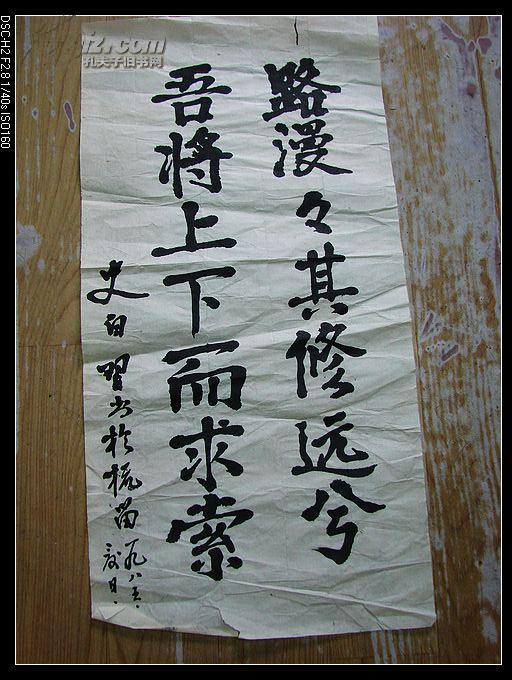 路漫々其修远兮
吾将上下而求索
史白習书於杭
一九八五.
日.
孔夫子旧书网
DSC-H2 F2.8 1/40s ISO160